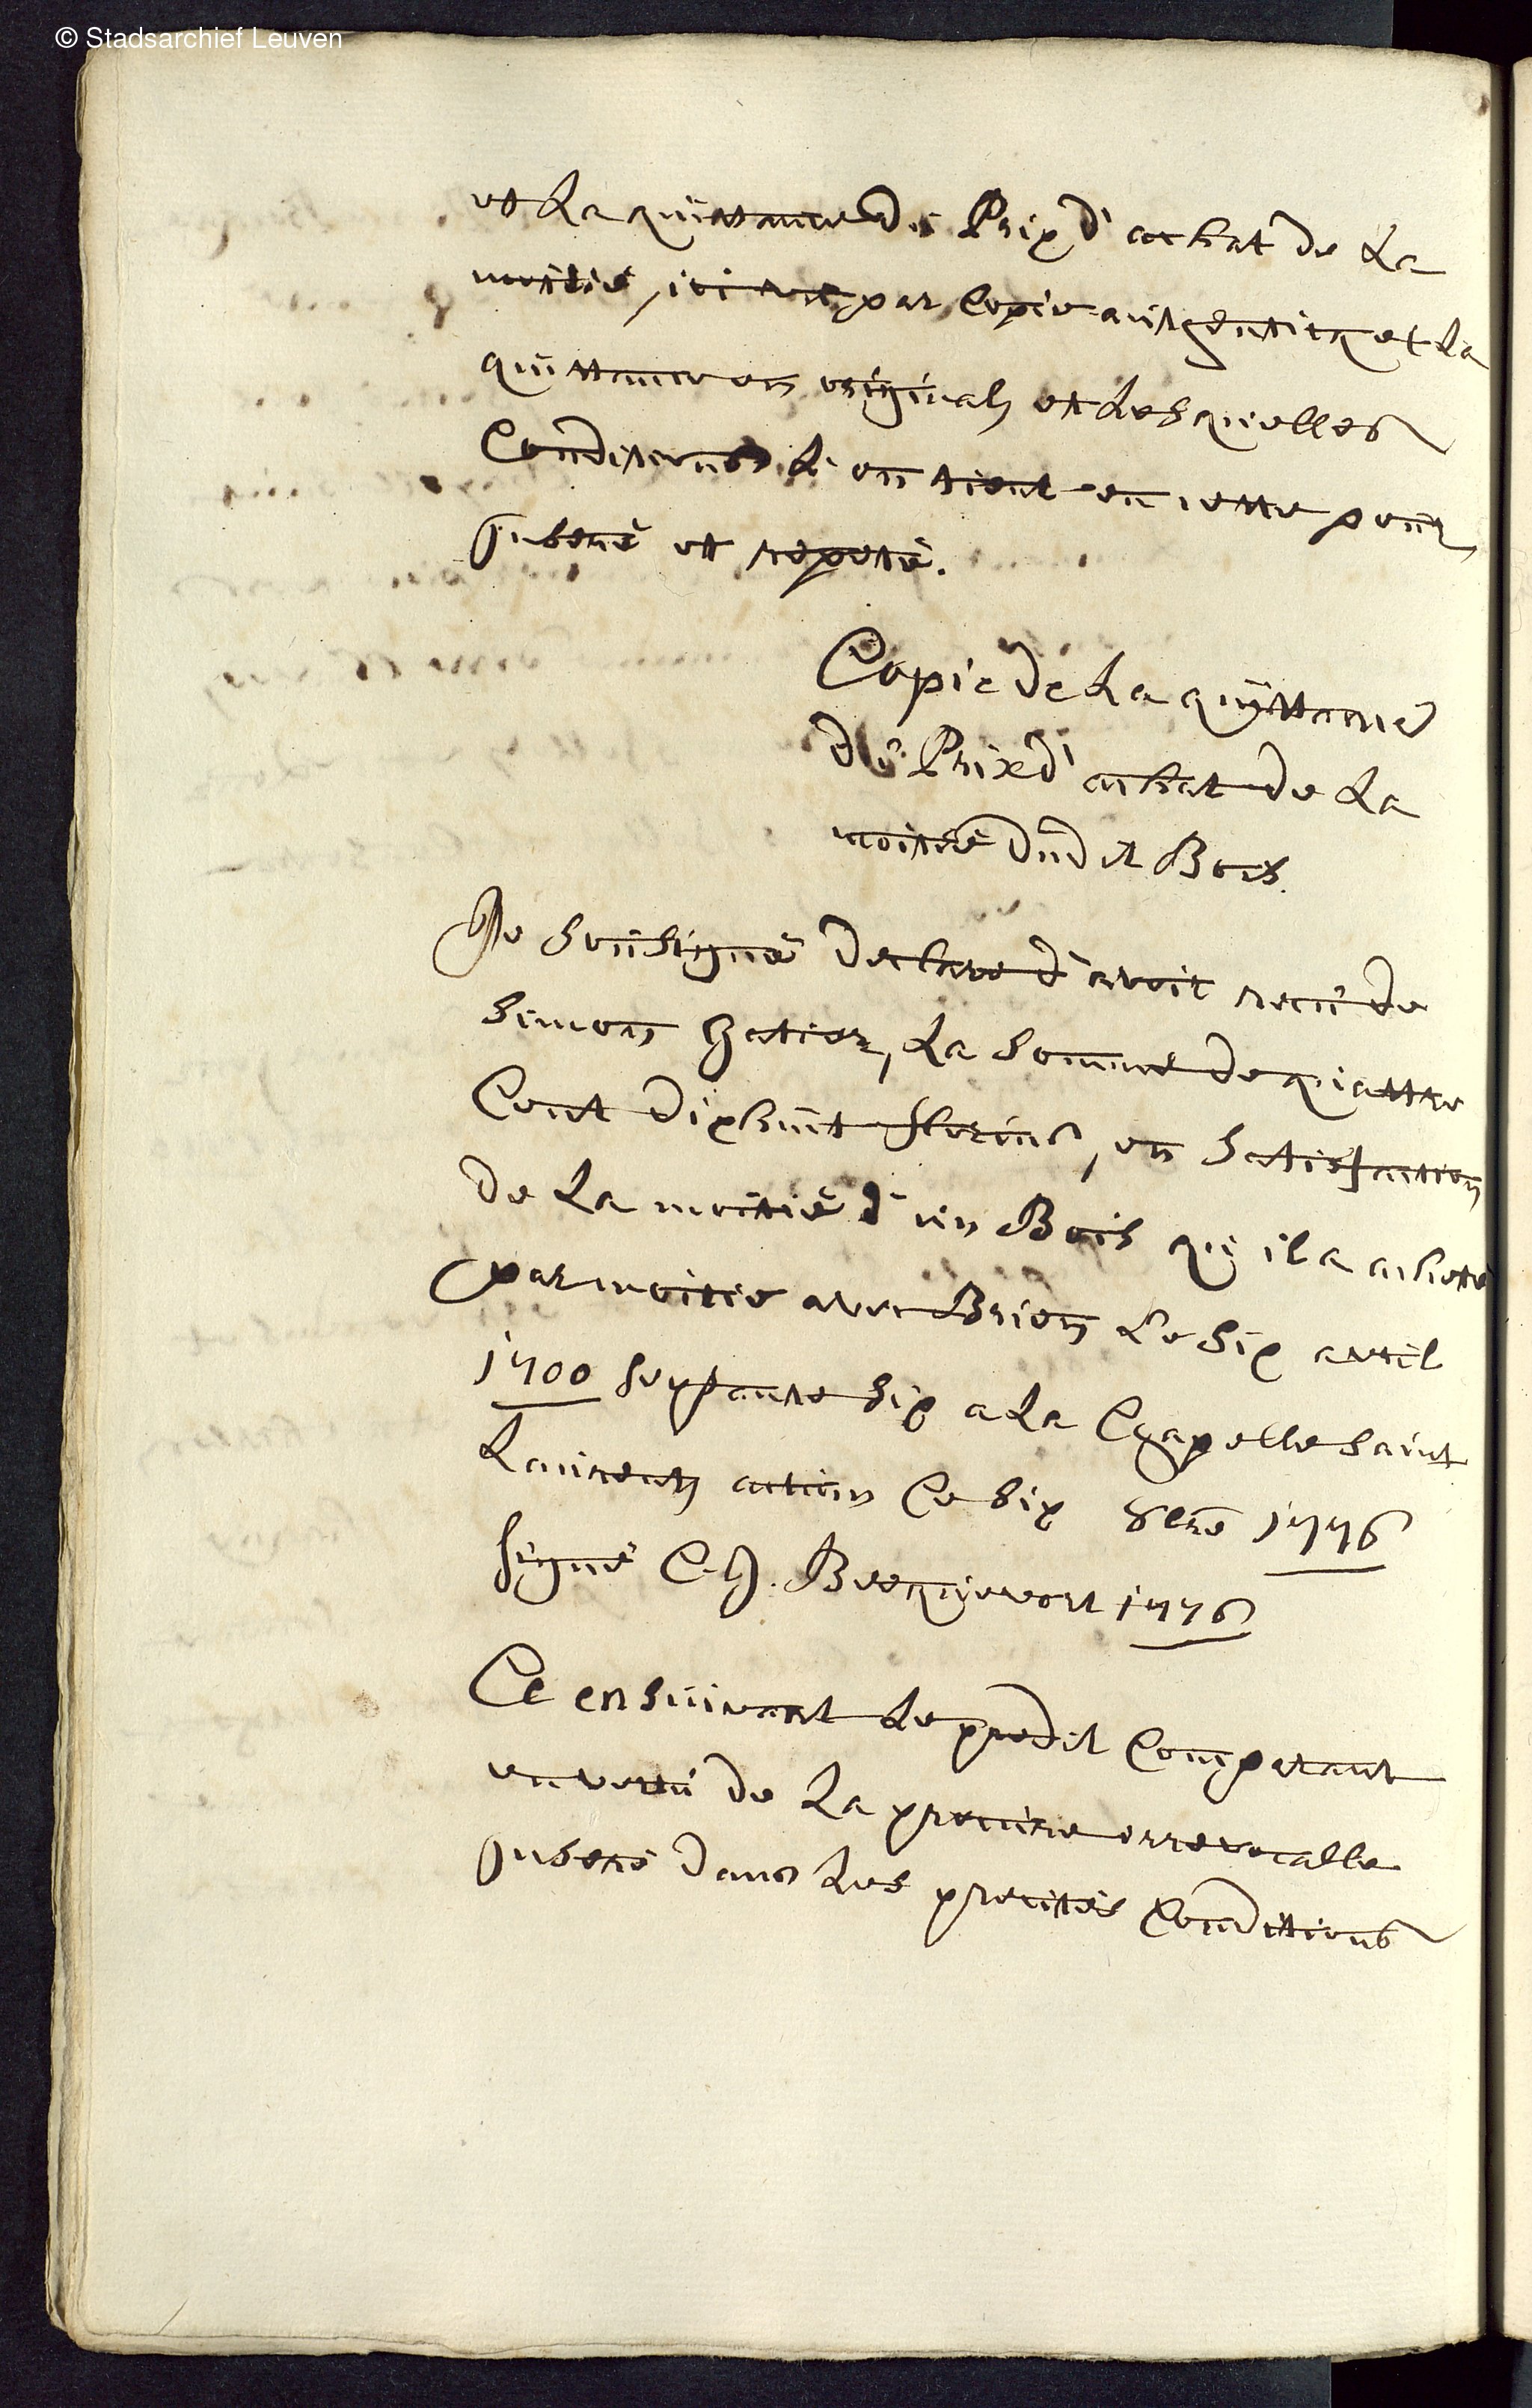 © Stadsarchief Leuven
et La quittance du Prix d'achat de La
moitié, ici par Copie autgenticq et La
quittance en originals et Lesquelles
Conditions L'on tient en cette pour
Inseré et repeté.
Copie de La quittance
du Prix d'achat de La
moitié dudit Bois.
Je Sousigné declare d'avoir recu de
Simon Gatier, La Somme de quattre
Cent dix huit florins, en Satisfaction
de La moitié d'un Bois qu'il a acheté
par moitié avec Brion Le Six avril
1700 Septante Six a La Cgapelle Saint
Laurents Ce Six 8bre 1776
Signé C. J. Becquevort 1776
Ce ensuivant Le predit Comparant
en vertu de La procure irrevocalle
Inseré dans Les precités Conditions